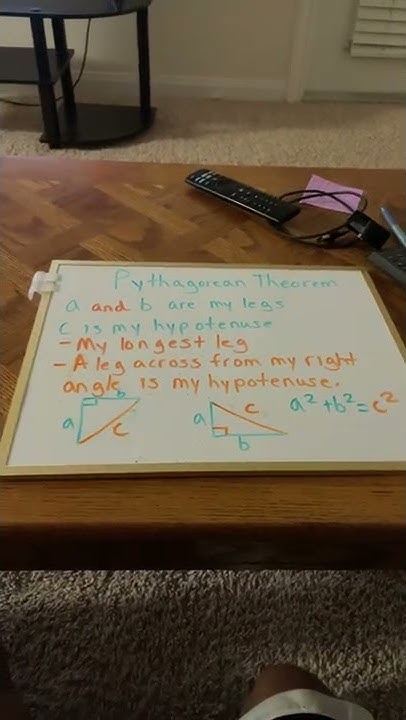 Pythagorean Theorem
a and b are my legs
c is my hypotenuse
- My longest leg
- A leg across from my right
angle is my hypotenuse.
a b c
a c b
a² + b² = c²